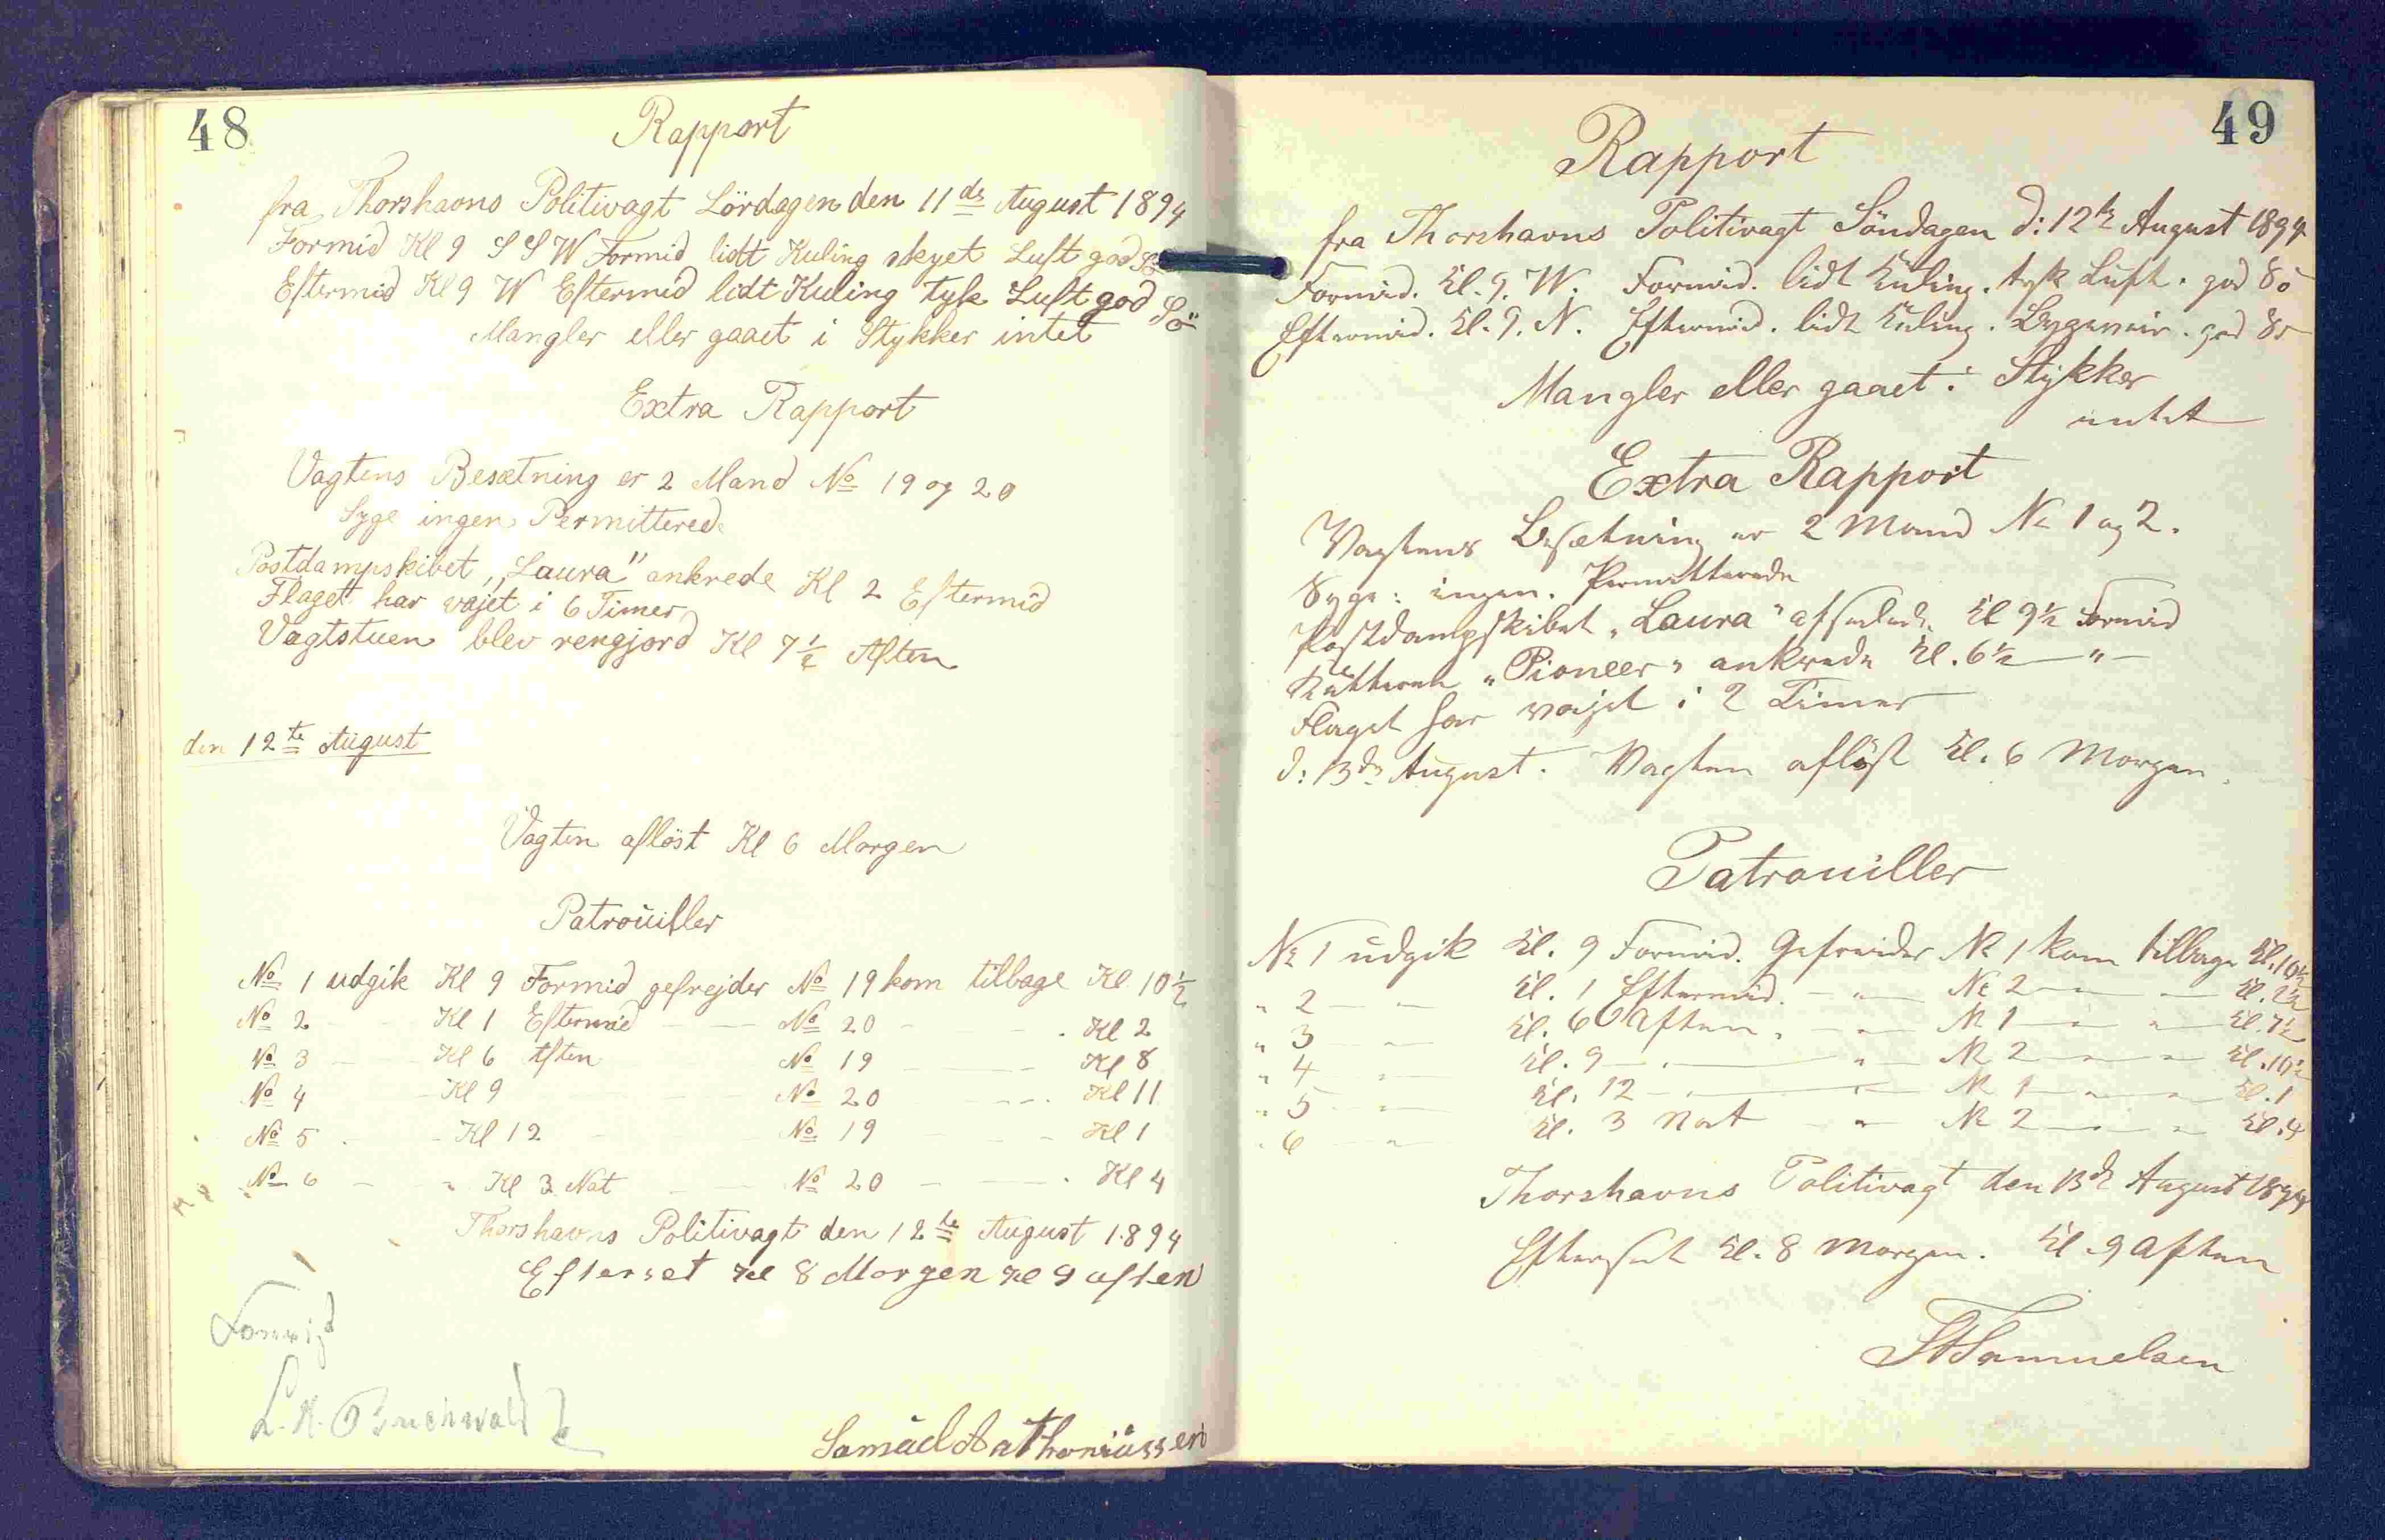 48
Rapport
fra Thorshavns Politivagt Lördagen den 11de August 1894
Formid Kl 9 S S W Formid lidt Kuling skyet Luft god Sö
Eftermid Kl 9 W Eftermid lidt Kuling tyk Luft god Sö
Mangler eller gaaet i Stykker intet
Extra Rapport
Vagtens Besætning er 2 Mand No 19 og 20
Syge ingen Permitterede
Postdampskibet „Laura" ankrede Kl 2 Eftermid
Flaget har vajet i 6 Timer
Vagtstuen blev rengjord Kl 7½ Aften
den 12te August
Vagten aflöst Kl 6 Morgen
Patrouiller
No 1 udgik Kl 9 Formid gefrejder No 19 kom tilbage Kl 10½
No 2 — Kl 1 Eftermid — No 20 — Kl 2
No 3 — Kl 6 Aften No 19 — Kl 8
No 4 — Kl 9 — No 20 — Kl 11
No 5 — Kl 12 — No 19 — Kl 1
No 6 — " Kl 3 Nat — No 20 — Kl 4
Thorshavns Politivagt den 12te August 1894
Efterset Kl 8 Morgen Kl 9 aften
L. H. Buchwald
Samuel Anthoniussen
49
Rapport
fra Thorshavns Politivagt Söndagen d: 12te August 1894
Formid. Kl. 9. W. Formid. lidt Kuling. tyk Luft. god Sö
Eftermid. Kl. 9. N. Eftermid. lidt Kuling. Bygeveir. god Sö
Mangler eller gaaet i Stykker
intet
Extra Rapport
Vagtens Besætning er 2 Mand No 1 og 2.
Syge: ingen. Permitterede
Postdampskibet „Laura" afseilede Kl 9½ Formid
Kutteren „Pioneer" ankrede Kl. 6½ — " —
Flaget har vajet i 2 Timer
d: 13de August. Vagten aflöst Kl. 6 Morgen.
Patrouiller
No 1 udgik Kl. 9 Formid. Gefreider No 1 kom tilbage Kl. 10½
" 2 — " Kl. 1 Eftermid. — " — No 2 — " — Kl. 2½
" 3 — " Kl. 6 Aften " — No 1 — " — " — Kl. 7½
" 4 — " Kl. 9 — " — No 2 — " — " — Kl. 10½
" 5 — " Kl. 12 — " — No 1 — " — " — Kl. 1
" 6 — " Kl. 3 Nat " No 2 — " — " — Kl. 4
Thorshavns Politivagt den 13de August 1894
Efterset Kl. 8 Morgen. Kl. 9 Aften
Samuelsen